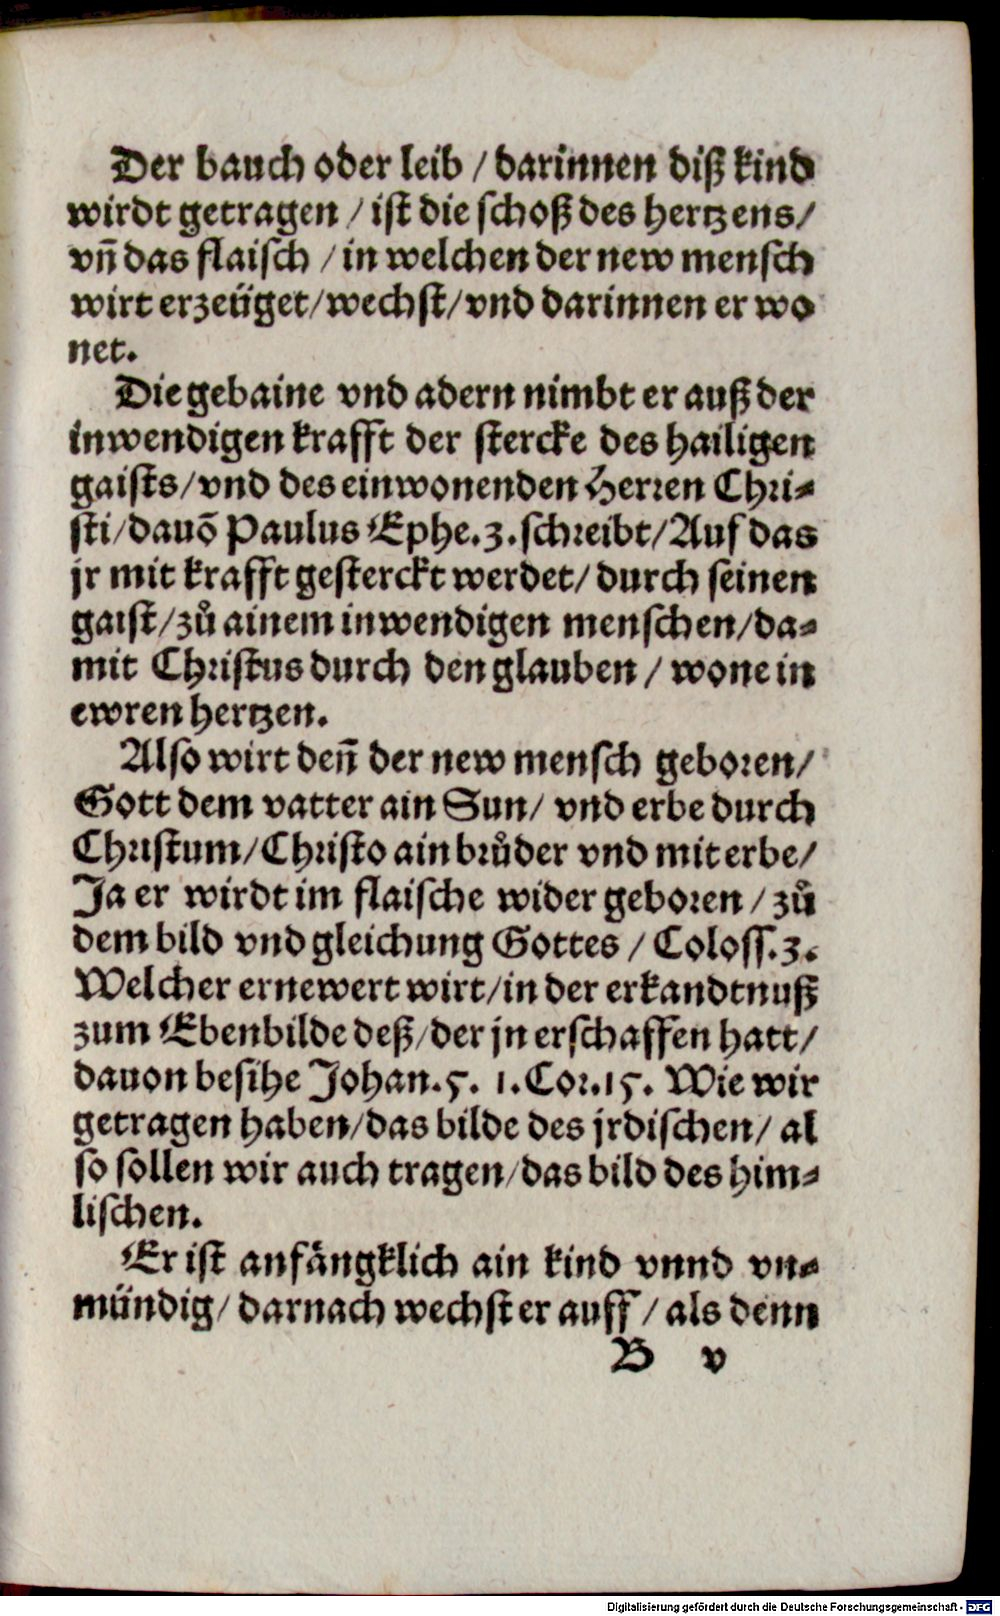 Der bauch oder leib / darinnen diß kind
wirdt getragen / ist die schoß des hertzens/
vñ das flaisch / in welchen der new mensch
wirt erzeüget/wechst/vnd darinnen er wo
net.
Die gebaine vnd adern nimbt er auß der
inwendigen krafft der stercke des hailigen
gaists/vnd des einwonenden Herren Chri⸗
sti/dauõ Paulus Ephe.3.schreibt/Auf das
jr mit krafft gesterckt werdet/durch seinen
gaist/zů ainem inwendigen menschen/da⸗
mit Christus durch den glauben / wone in
ewren hertzen.
Also wirt deñ der new mensch geboren/
Gott dem vatter ain Sun/ vnd erbe durch
Christum/Christo ain brůder vnd mit erbe/
Ja er wirdt im flaische wider geboren / zů
dem bild vnd gleichung Gottes / Coloss.3.
Welcher ernewert wirt/in der erkandtnuß
zum Ebenbilde deß/der jn erschaffen hatt/
dauon besihe Johan.5. 1.Cor.15. Wie wir
getragen haben/das bilde des jrdischen/ al
so sollen wir auch tragen/das bild des him⸗
lischen.
Er ist anfängklich ain kind vnnd vn⸗
mündig/ darnach wechst er auff / als denn
B v
Digitalisierung gefördert durch die Deutsche Forschungsgemeinschaft - DFG